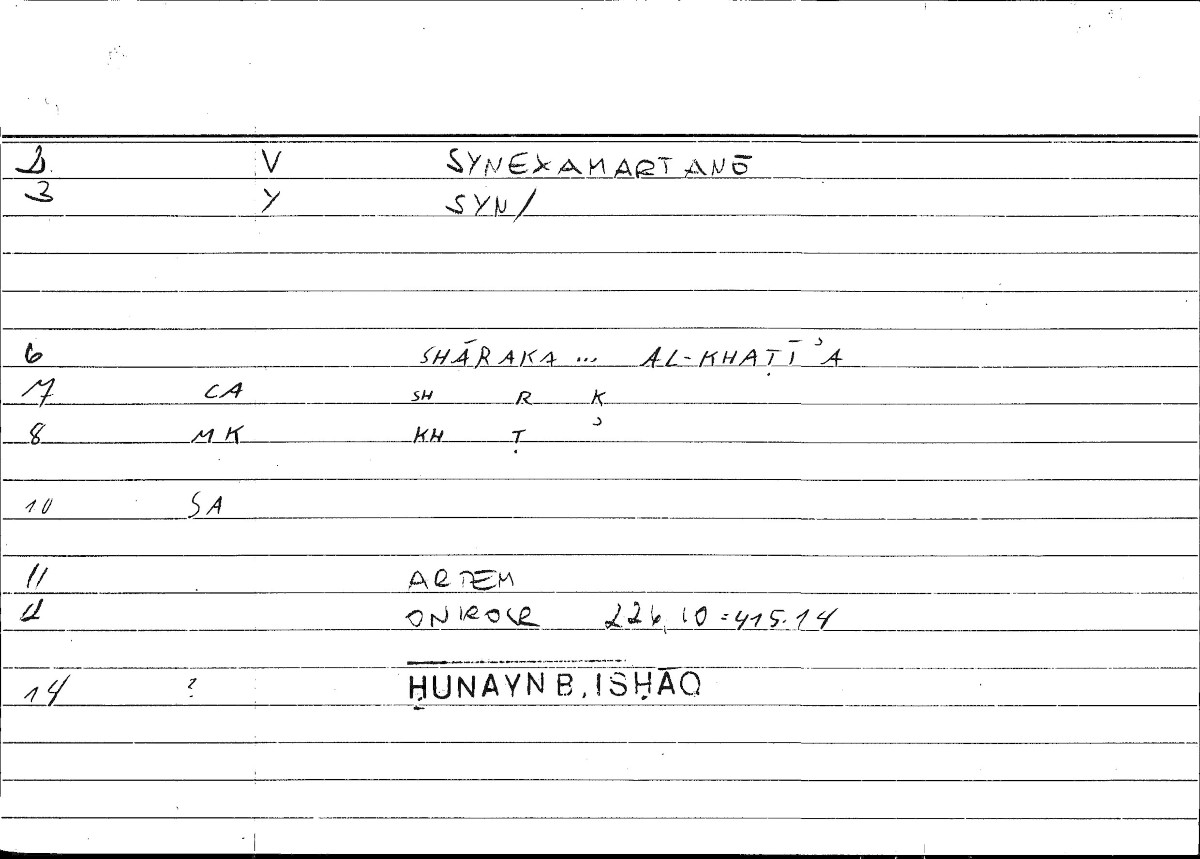 2 V SYNEXAMARTANŌ
3 Y SYN/
6 SHĀRAKA ... AL-KHAṬĪʾA
7 CA SH R K
8 MK KH Ṭ ʾ
10 SA
11 ARTEM
12 ONIROCR 226,10=415.14
14 ? ḤUNAYN B. ISḤĀQ